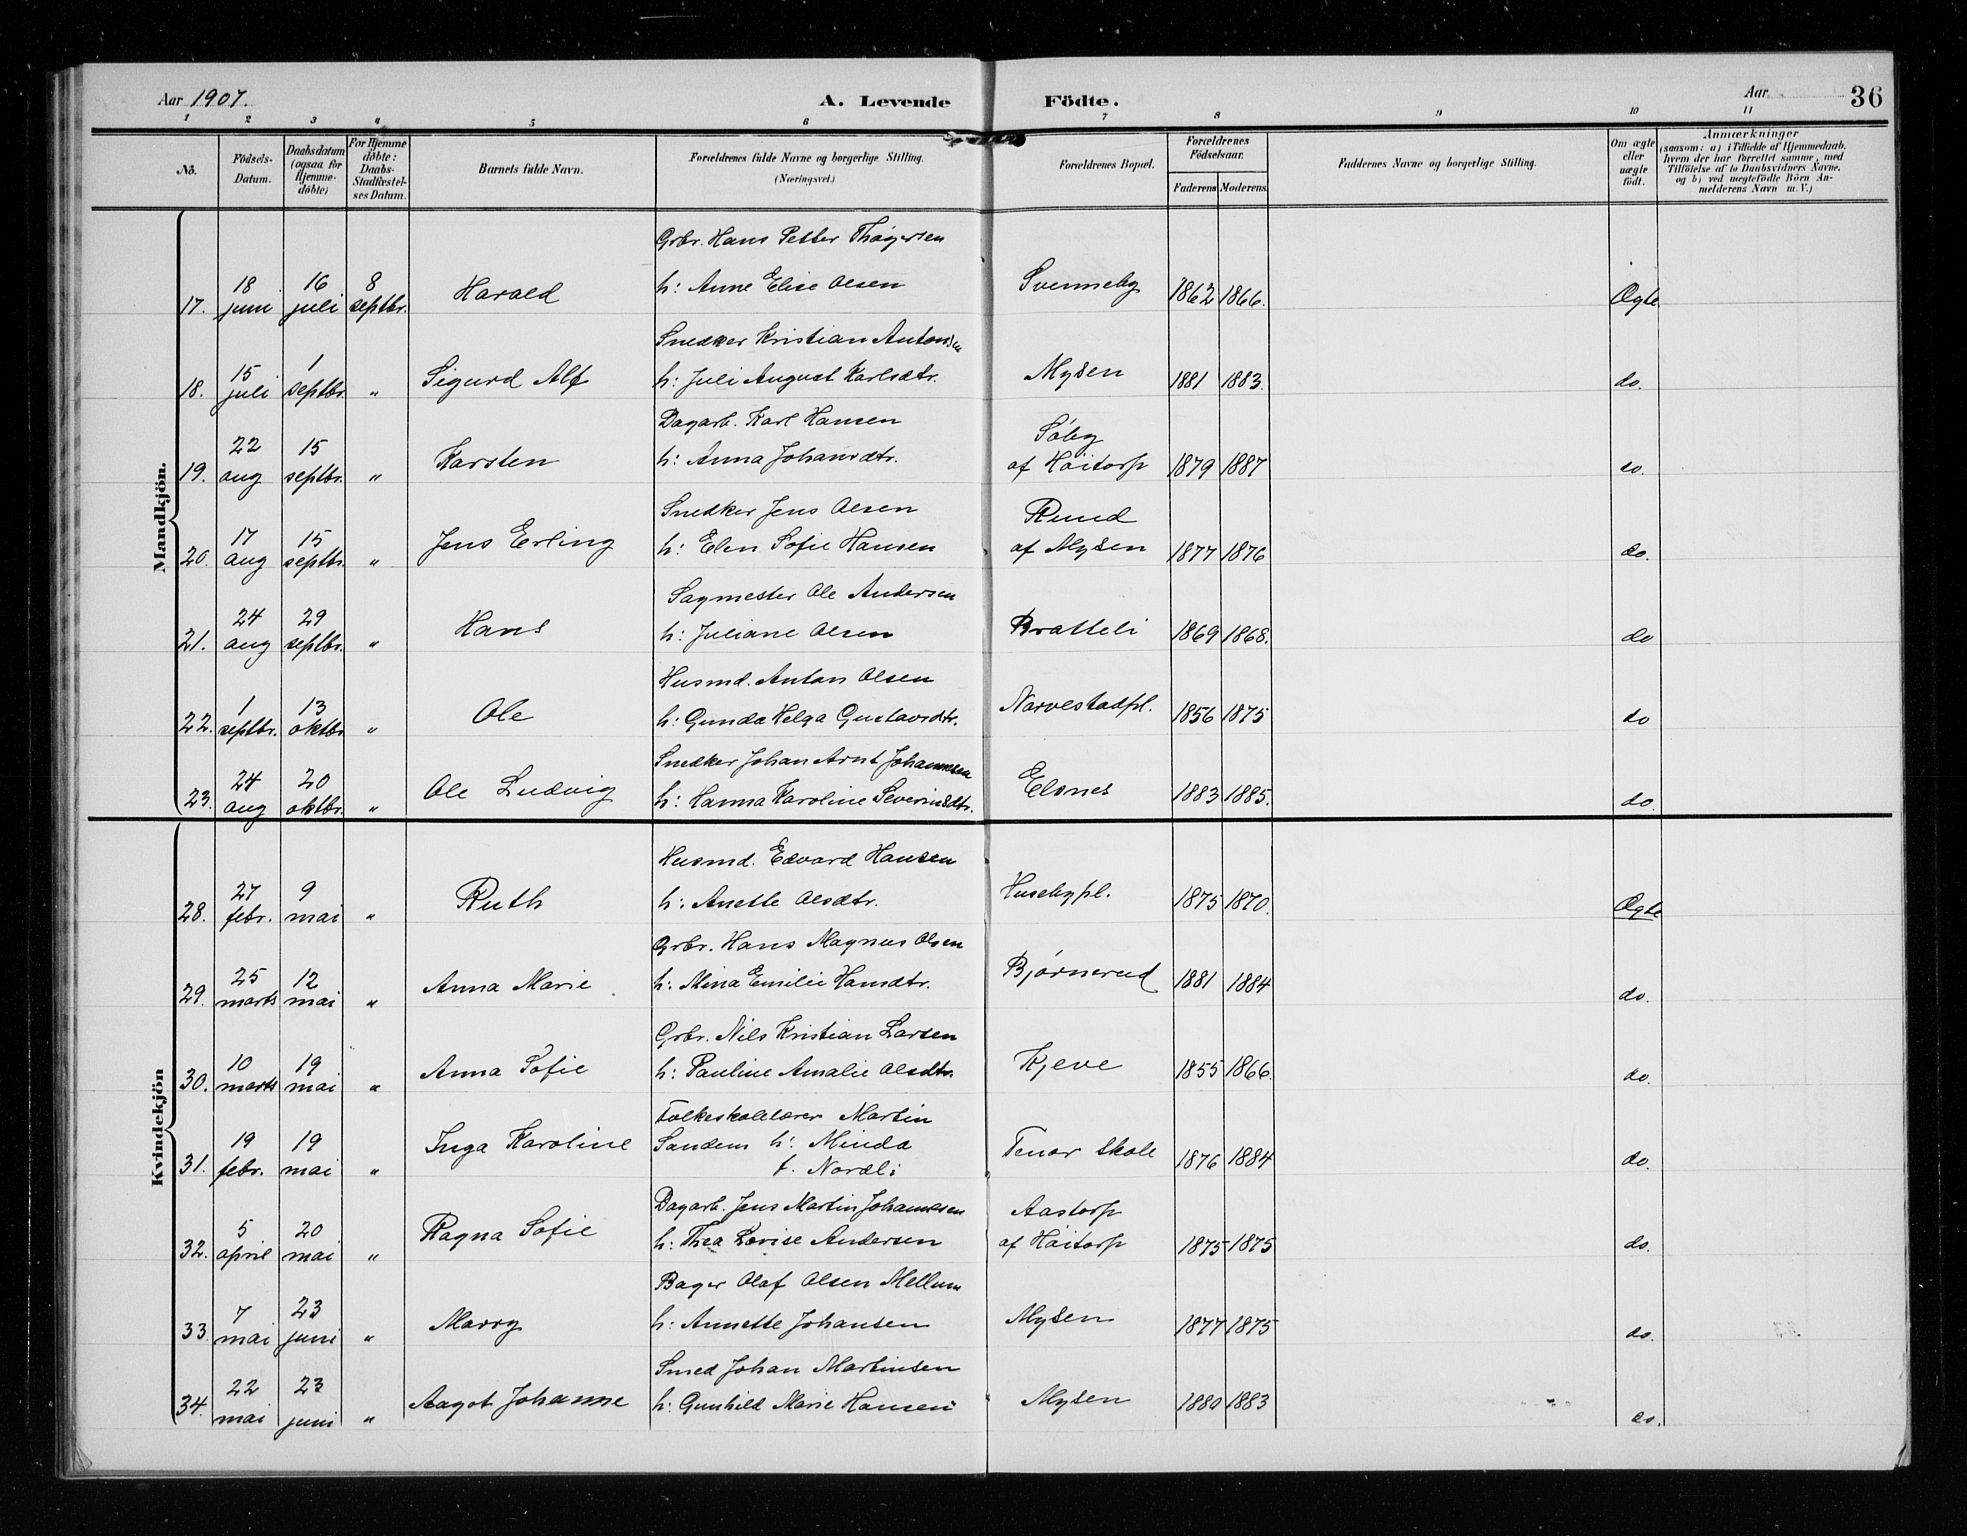 Aar 1907.
A. Levende Födte.
Aar 36
1 2 3 4 5 6 7 8 9 10 11
No.
Födsels-
Datum.
Daabsdatum
(ogsaa for
Hjemme-
döbte)
For Hjemme
döbte:
Daabs-
Stadfæstel-
ses Datum.
Barnets fulde Navn.
Forældrenes fulde Navne og borgerlige Stilling.
(Næringsvei.)
Forældrenes Bopæl.
Forældrenes
Födselsaar.
Faderens Moderens.
Faddernes Navne og borgerlige Stilling.
Om ægte
eller
uægte
födt.
Anmærkninger
(saasom: a) i Tilfælde af Hjemmedaab,
hvem der har forrettet samme, med
Tilföielse af to Daabsvidners Navne,
og b) ved uægtefödte Börn An-
melderens Navn m. V.)
Mandkjön.
Grbr. Hans Petter Thøgersen
17. 18 juni 16 juli 8 septbr. Harald h: Anne Elise Olsen Svenneby 1862 1866. Ægte
Snedker Kristian Antonsen
18. 15 juli 1 septbr. " Sigurd Alf h: Juli August Karlsdtr. Mysen 1881 1883. do.
Dagarb. Karl Hansen Söby
19. 22 aug 15 septbr. " Karsten h: Anna Johansdtr. af Höitorp 1879 1887 do.
Snedker Jens Olsen Rund
20. 17 aug 15 septbr. " Jens Erling h: Elen Sofie Hansen af Mysen 1877 1876 do.
Sagmester Ole Andersen
21. 24 aug 29 septbr. " Hans h: Juliane Olsen Bratteli 1869 1868. do
Husmd. Anton Olsen
22. 1 septbr. 13 oktbr " Ole h: Gunda Helga Gustavsdtr. Narvestadpl. 1856 1875 do
Snedker Johan Arnt Johannesen
23. 24 aug 20 oktbr. " Ole Ludvig h: Hanna Karoline Severinsdtr. Elsnes 1883 1885. do.
Kvindekjön
Husmd. Edvard Hansen
28. 27 febr. 9 mai " Ruth h: Anette Olsdtr. Husebypl. 1875 1870. Ægte
Grbr. Hans Magnus Olsen
29. 25 marts 12 mai " Anna Marie h: Mina Emilie Hansdtr. Bjørnerud 1881 1884 do.
Grbr. Nils Kristian Larsen
30. 10 marts 19 mai " Anna Sofie h: Pauline Amalie Olsdtr. Kjeve 1855 1866. do.
Folkeskolelærer Martin
31. 19 febr. 19 mai " Inga Karoline Sandem h: Minda Tenor skole 1876 1884 do.
f. Nordli
Dagarb. Jens Martin Johannesen Aastorp
32. 5 april 20 mai " Ragna Sofie h: Thea Lovise Andersen af Höitorp 1875 1875 do.
Bager Olaf Olsen Mellum
33. 7 mai 23 juni " Marry h: Annette Johansen Mysen 1877 1875 do.
Smed Johan Martinsen
34. 22 mai 23 juni " Aagot Johanne h: Gunhild Marie Hansen Mysen 1880 1883 do.